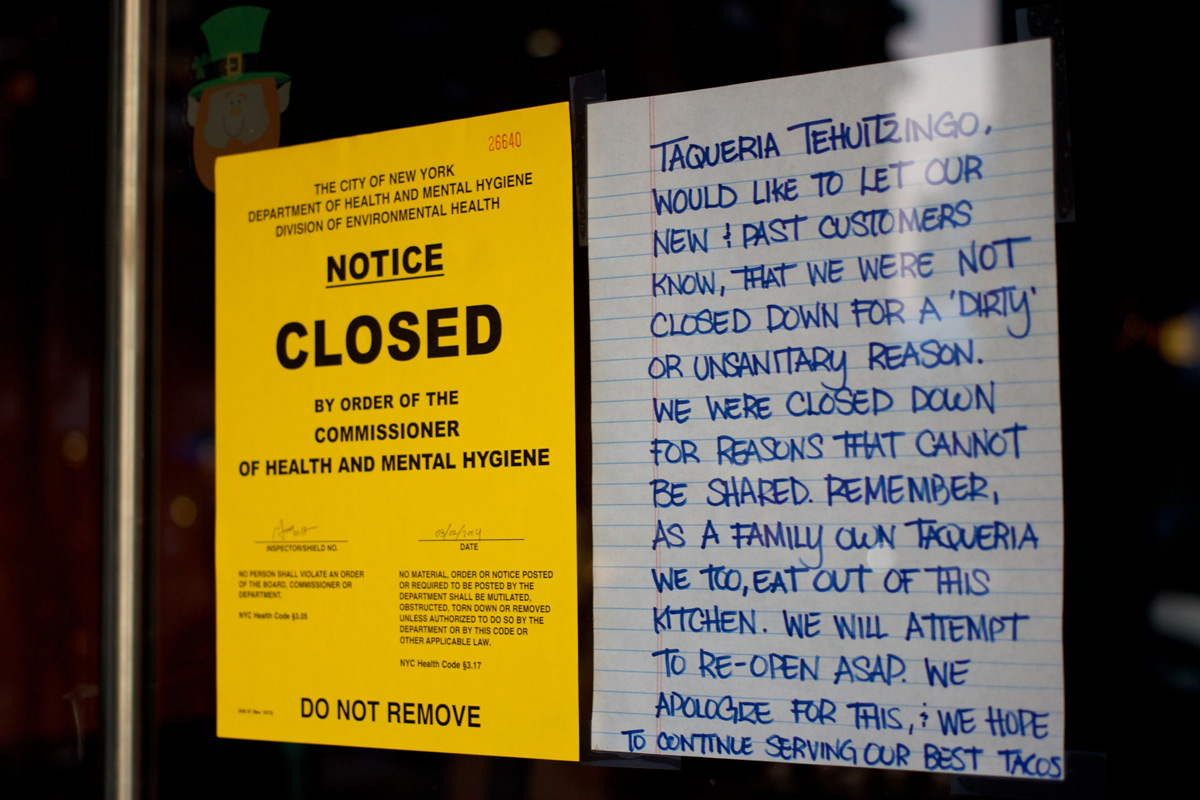 26640
THE CITY OF NEW YORK
DEPARTMENT OF HEALTH AND MENTAL HYGIENE
DIVISION OF ENVIRONMENTAL HEALTH
NOTICE
CLOSED
BY ORDER OF THE
COMMISSIONER
OF HEALTH AND MENTAL HYGIENE
INSPECTOR/SHIELD NO.
DATE
NO PERSON SHALL VIOLATE AN ORDER
OF THE BOARD, COMMISSIONER OR
DEPARTMENT.
NYC Health Code §3.05
NO MATERIAL, ORDER OR NOTICE POSTED
OR REQUIRED TO BE POSTED BY THE
DEPARTMENT SHALL BE MUTILATED,
OBSTRUCTED, TORN DOWN OR REMOVED
UNLESS AUTHORIZED TO DO SO BY THE
DEPARTMENT OR BY THIS CODE OR
OTHER APPLICABLE LAW.
NYC Health Code §3.17
DO NOT REMOVE
TAQUERIA TEHUITZINGO,
WOULD LIKE TO LET OUR
NEW & PAST CUSTOMERS
KNOW, THAT WE WERE NOT
CLOSED DOWN FOR A 'DIRTY'
OR UNSANITARY REASON.
WE WERE CLOSED DOWN
FOR REASONS THAT CANNOT
BE SHARED. REMEMBER,
AS A FAMILY OWN TAQUERIA
WE TOO, EAT OUT OF THIS
KITCHEN. WE WILL ATTEMPT
TO RE-OPEN ASAP. WE
APOLOGIZE FOR THIS, & WE HOPE
TO CONTINUE SERVING OUR BEST TACOS